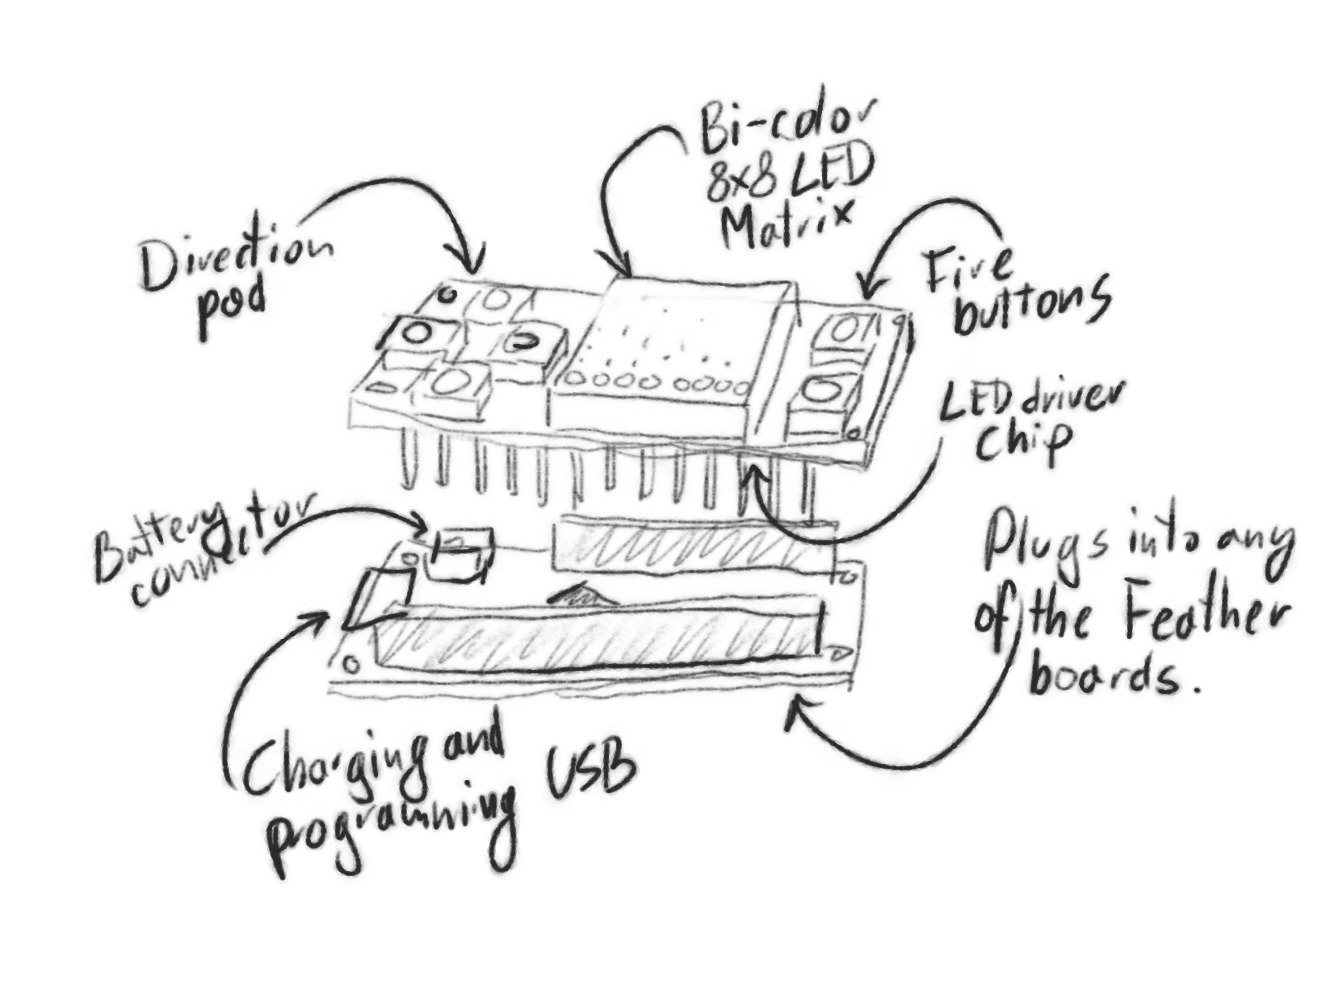 Bi-color
8x8 LED
Matrix
Direction
pad
Five
buttons
LED driver
chip
Battery
connector
Plugs into any
of the Feather
boards.
Charging and
programming USB